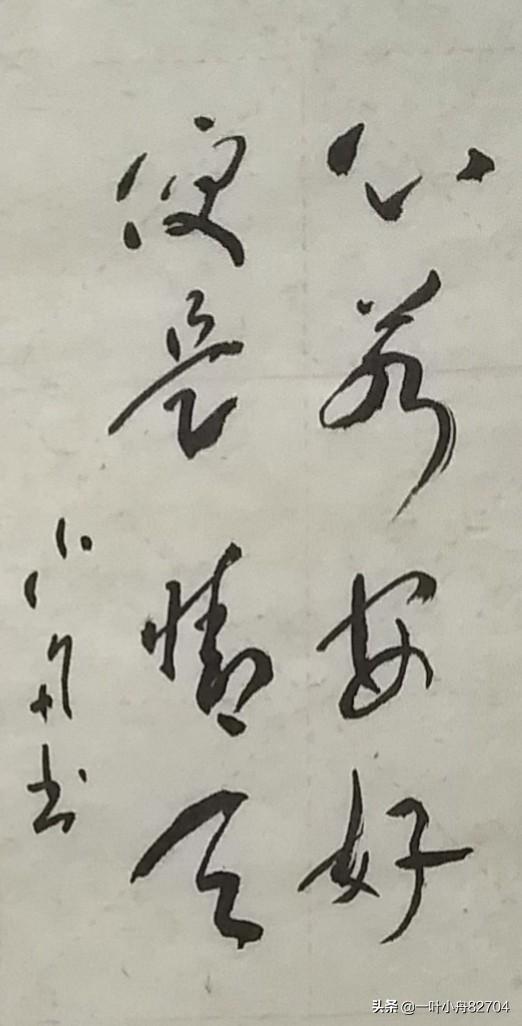 心若安好
便是晴天
小舟书
头条 @一叶小舟82704